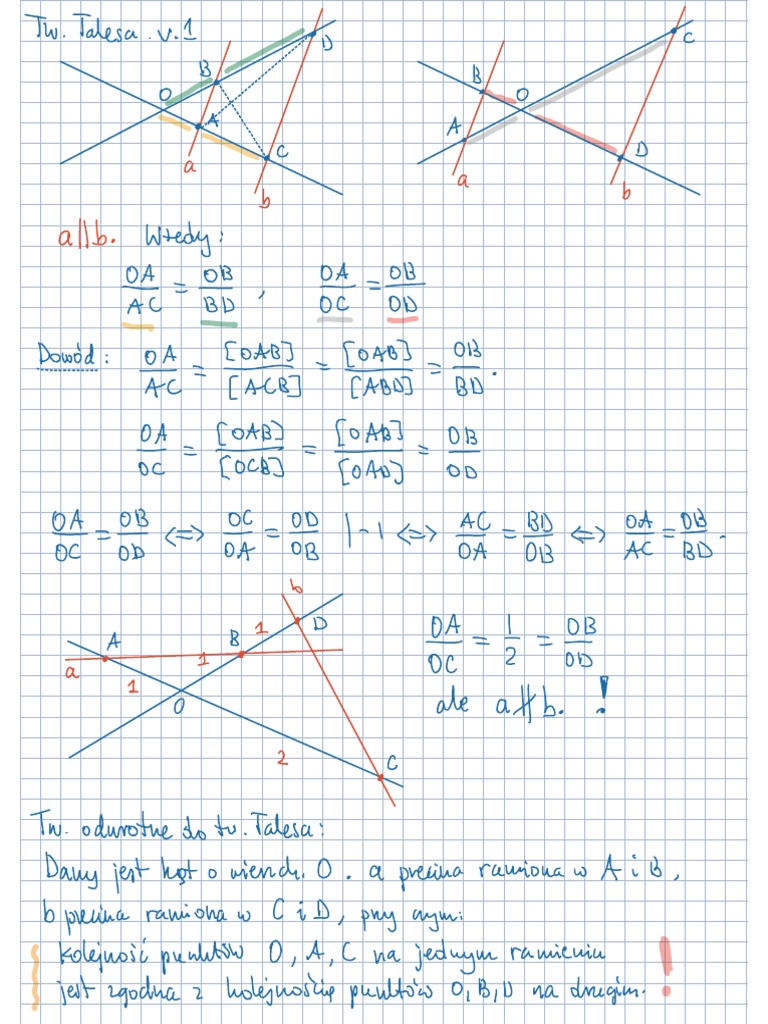 Tw. Talesa v.1
B D O A C a b
C B O A D a b
a||b. Wtedy:
OA/AC = OB/BD , OA/OC = OB/OD
Dowód: OA/AC = [OAB]/[ACB] = [OAB]/[ABD] = OB/BD.
OA/OC = [OAB]/[OCB] = [OAB]/[OAD] = OB/OD
OA/OC = OB/OD <=> OC/OA = OD/OB |-1 <=> AC/OA = BD/OB <=> OA/AC = OB/BD.
b D 1 B A a 1 1 O 2 C
OA/OC = 1/2 = OB/OD
ale a∦b. !
Tw. odwrotne do tw. Talesa:
Dany jest kąt o wierzch. O. a przecina ramiona w A i B,
b przecina ramiona w C i D, przy czym:
kolejność punktów O, A, C na jednym ramieniu
jest zgodna z kolejnością punktów O, B, D na drugim. !